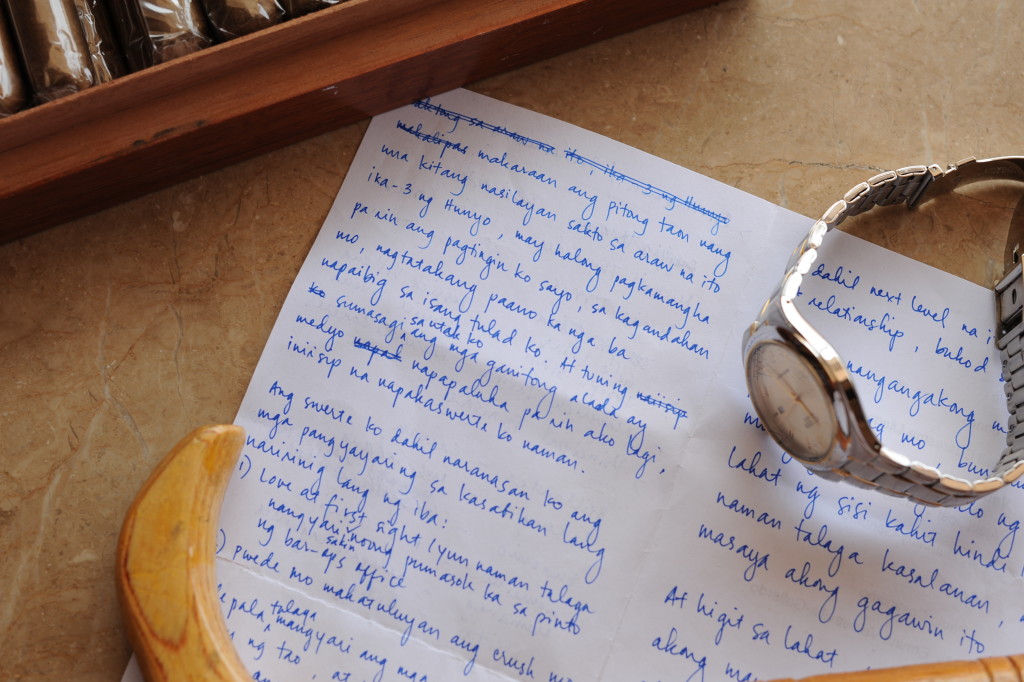 sa araw na ito, ika-3 ng Hunyo
makalipas makaraan ang pitong taon nang
una kitang nasilayan sakto sa araw na ito
ika-3 ng Hunyo, may halong pagkamangha
pa rin ang pagtingin ko sayo, sa kagandahan
mo, nagtatakang paano ka nga ba
napaibig sa isang tulad ko. At tuwing naiisip
ko sumasagi sa utak ko ang mga ganitong alaala ay
medyo napapaluha pa rin ako lagi,
iniisip na napakaswerte ko naman.
Ang swerte ko dahil naranasan ko ang
mga pangyayaring sa kasabihan lang
naririnig lang ng iba:
1) Love at first sight (yun naman talaga
nangyari sakin noong pumasok ka sa pinto
ng bar-ays office
) pwede mo makatuluyan ang crush
pala talaga mangyari ang mga
ng tao, at
dahil next level na
relationship, bukod
nangangakong
mo,
lahat ng sisi kahit hindi
naman talaga kasalanan
masaya akong gagawin ito
At higit sa lahat,
akong